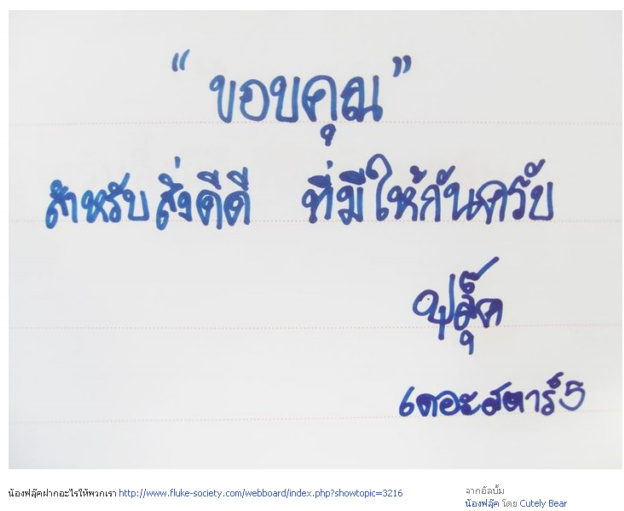 “ขอบคุณ”
สำหรับสิ่งดีดี ที่มีให้กันครับ
ฟลุ๊ค
เดอะสตาร์5
น้องฟลุ๊คฝากอะไรให้พวกเรา http://www.fluke-society.com/webboard/index.php?showtopic=3216
จากอัลบั้ม
น้องฟลุ๊ค โดย Cutely Bear